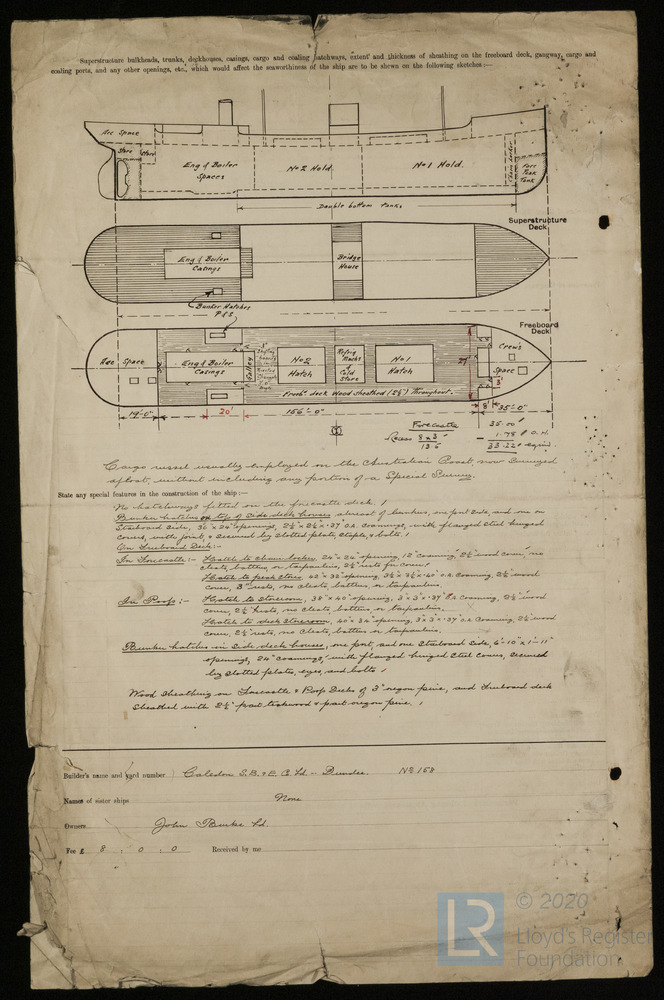 Superstructure bulkheads, trunks, deckhouses, casings, cargo and coaling hatchways, extent and thickness of sheathing on the freeboard deck, gangway, cargo and
coaling ports, and any other openings, etc., which would affect the seaworthiness of the ship are to be shewn on the following sketches:—
Aec Space
Store
Store
Eng & Boiler
Spaces
No 2 Hold.
No 1 Hold.
Chain Locker
Fore
Peak
Tank
Double bottom tanks
Superstructure
Deck
Eng & Boiler
Casings
Bridge
House
Bunker Hatches
P & S
Freeboard
Deck
Aec Space
Eng & Boiler
Casings
Galley
No 2
Hatch
Refrig
Macht
&
Cold
Store
No 1
Hatch
27'
Crew's
Space
3'
Freeb. deck Wood Sheathed (2½") Throughout.
19'-0"
20'
156'-0"
8'
35'-0"
Forecastle
Recess 8 x 3
35.00
1.78
33.22
Cargo vessel usually employed on the Australian Coast, now surveyed
afloat, without including any portion of a Special Survey.
State any special features in the construction of the ship:—
No hatchways fitted on the forecastle deck.
Bunker hatches on top of side deck houses abreast of bunkers, one port side, and one on
Starboard side, 36" x 24" openings, 2½ x 2½ x .37" O.A. coamings, with flanged steel hinged
covers, with joint, & secured by slotted plate, staple, & bolts.
On Freeboard Deck:—
In Forecastle:— Hatch to chain locker 24" x 24" opening, 12" coaming, 2½ wood cover, no
cleats, battens, or tarpaulins, 2½ rests for cover
Hatch to peak store 42" x 32" opening, 3½ x 3½ x .40" O.A. coaming, 2½ wood
cover, 3" rests, no cleats, battens or tarpaulins.
In Poop:— Hatch to storeroom, 38" x 40" opening, 3 x 3 x .37" O.A. coaming, 2½ wood
cover, 2½ rests, no cleats, battens or tarpaulins.
Hatch to deck storeroom 40 x 34" opening, 3 x 3 x .37 O.A. coaming, 2½ wood
cover, 2½ rests, no cleats, battens or tarpaulins.
Bunker hatches in side deck houses, one port and one starboard side, 6'-10" x 1'-11"
openings, 24" coamings, with flanged hinged steel covers, secured
by slotted plates, eyes, and bolts
Wood Sheathing on Forecastle & Poop Decks of 3" oregon pine, and Freeboard deck
Sheathed with 2½" part teakwood & part oregon pine.
Builder's name and yard number Caledon S.B. & E. Co. Ld – Dundee. No 158
Names of sister ships None
Owners John Burke Ld.
Fee £ 8 : 0 : 0 Received by me
LR
© 2020
Lloyd's Register
Foundation